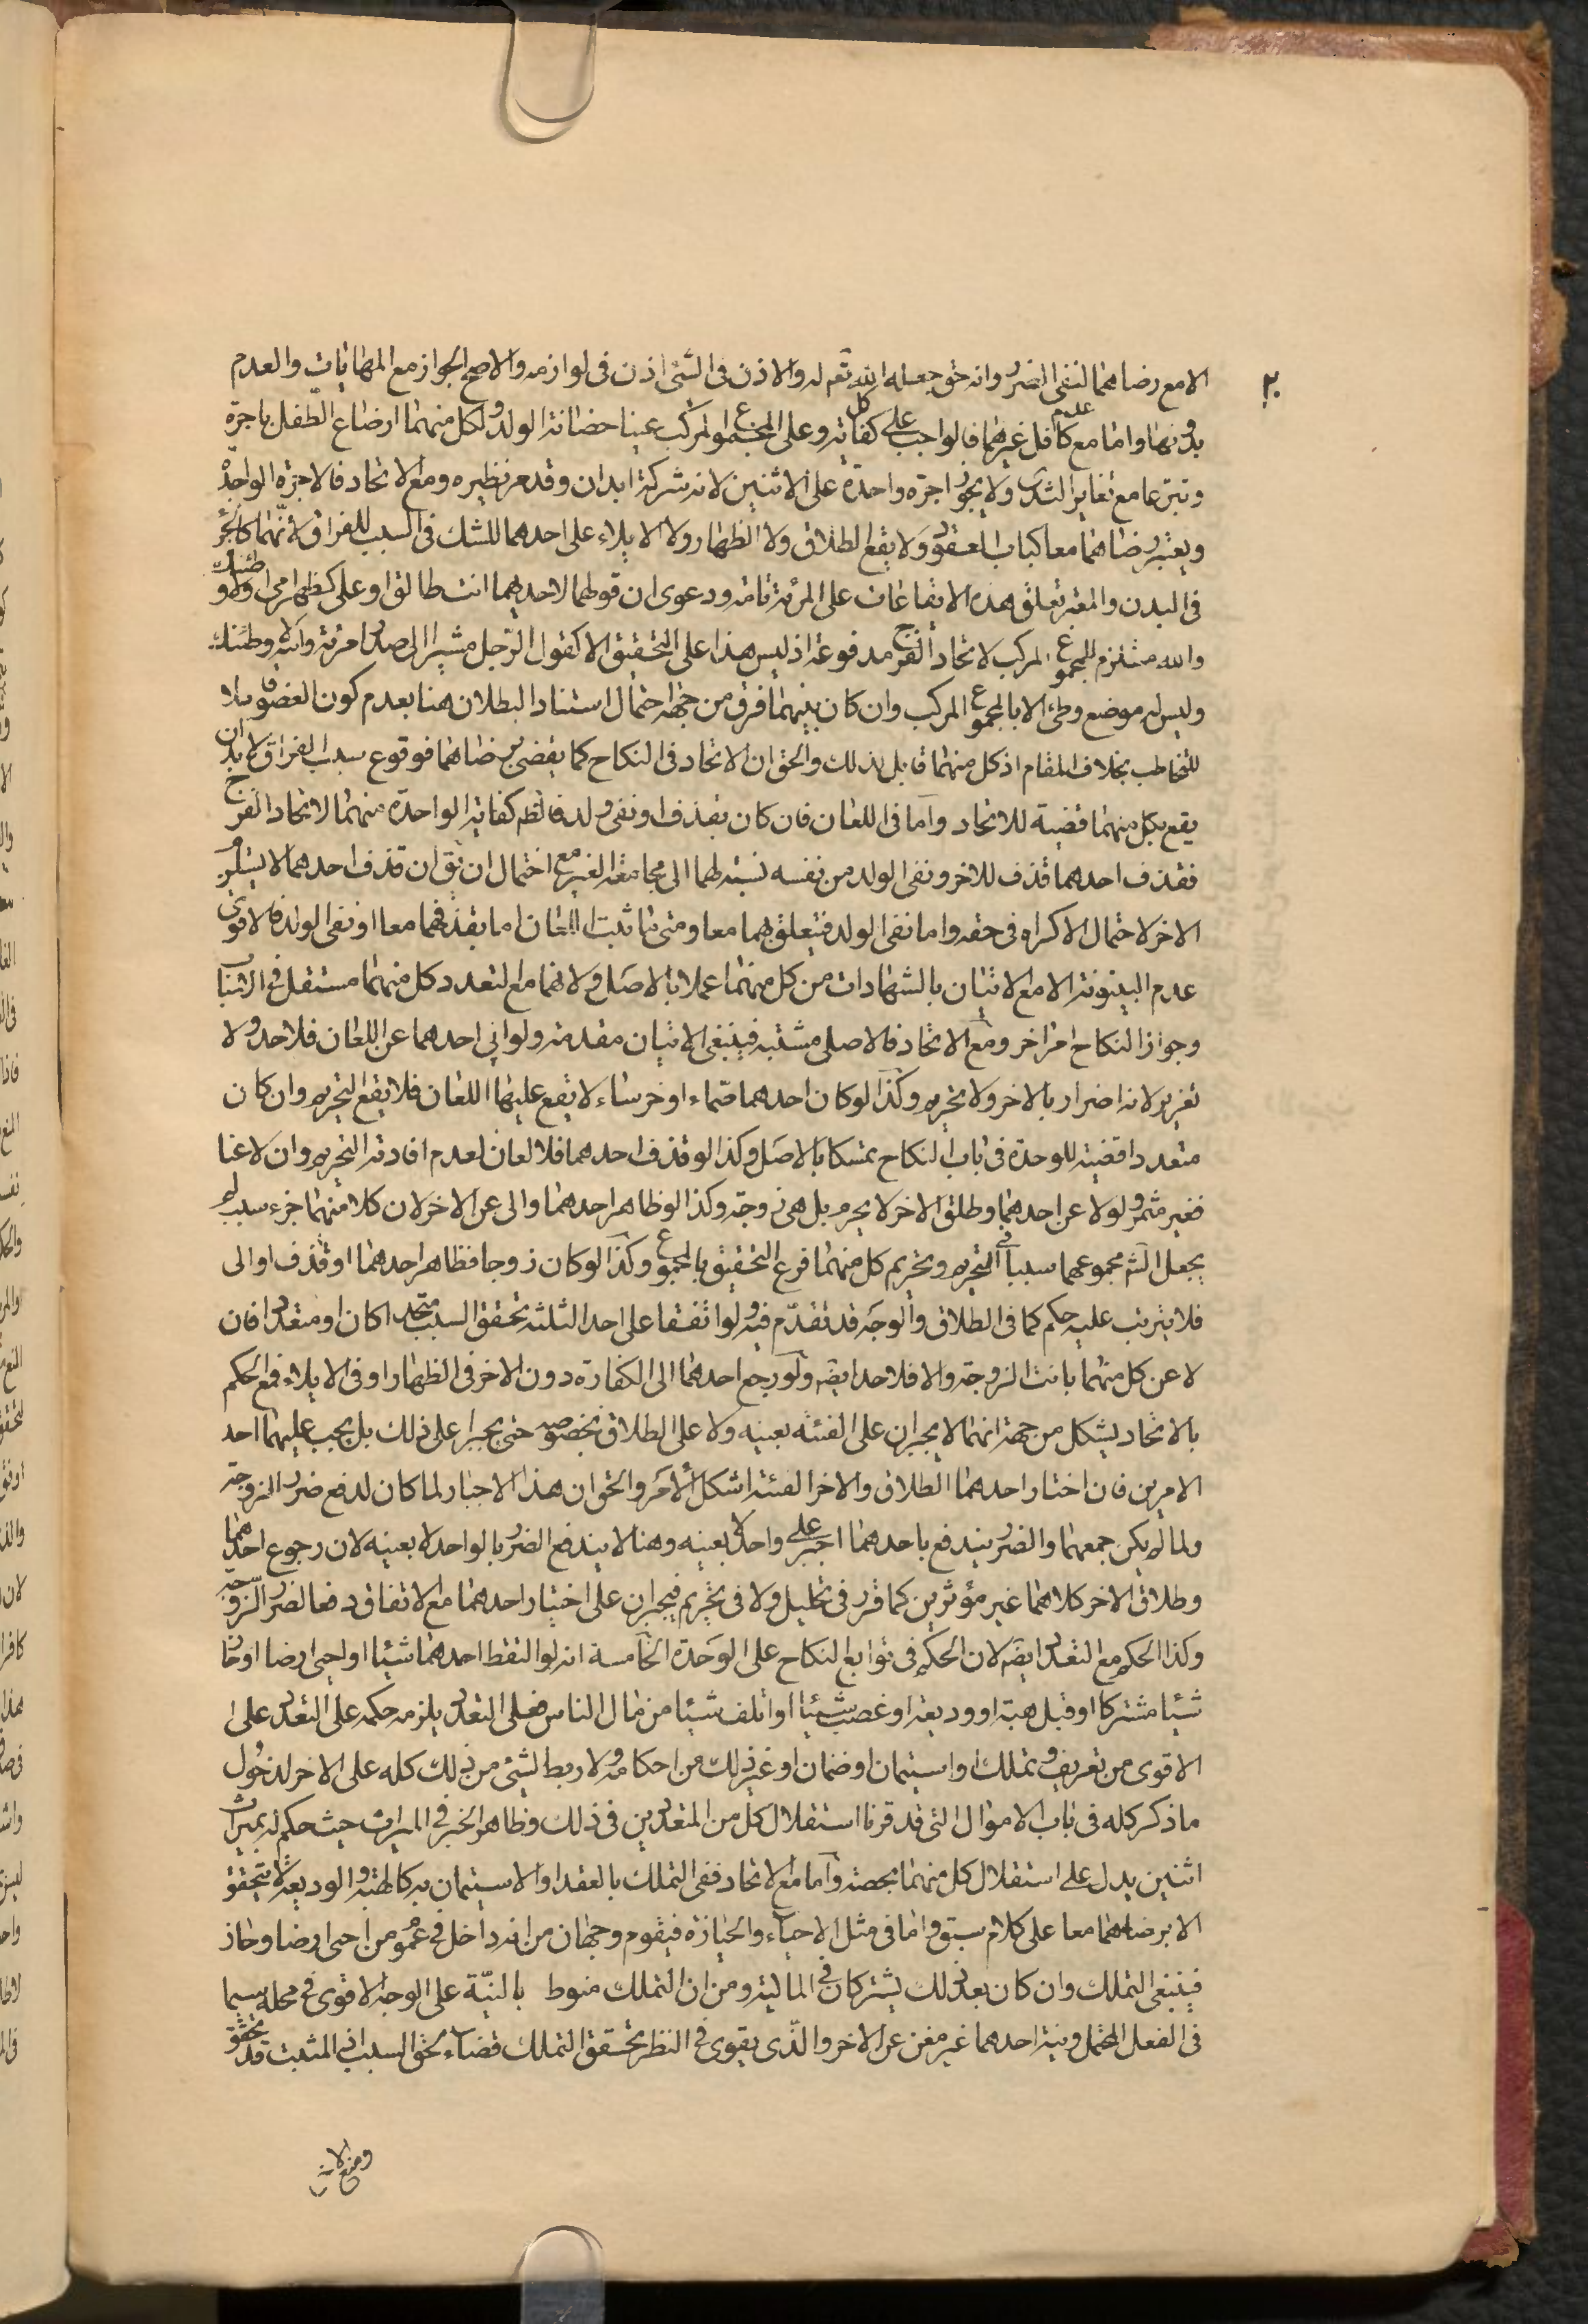 ٢٠
الا مع رضاهما لنفى الضرر وانه حق جعله الله تعم له والاذن فى الشئ اذن فى لوازمه والاصح الجواز مع المهايات والعدم
بدونها واما مع عدم كافل غيرهما فالواجب على كل كفايته وعلى المجموع المركب عينا حضانة الولد ولكل منهما ارضاع الطفل باجرة
وتبرعا مع تغاير الثدى ولا يجوز اجرة واحدة على الاثنين لانه شركة ابدان وقد مر نظيره ومع الاتحاد فالاجرة الواحدة
ويعتبر رضاهما معا كباب العقود ولا يقع الطلاق ولا الظهار ولا الايلاء على احدهما للشك فى السبب للفراق لانهما كالجزء
فى البدن والمعتبر تعلق هذه الايقاعات على المرئة تامة ودعوى ان قولهما لاحديهما انت طالق او على كظهر امى او لا وطئتك
والله مستلزم للمجموع المركب لاتحاد الفرج مدفوعة اذ ليس هذا على التحقيق الا كقول الرجل مشيرا الى صدر امرئته والله لا وطئتك
وليس له موضع وطئ الا بالمجموع المركب وان كان بينهما فرق من جهة احتمال استناد البطلان هنا بعدم كون العضو قابلا
للتخاطب بخلاف المقام اذ كل منهما قابل لذلك والحق ان الاتحاد فى النكاح كما يقضى برضاهما فوقوع سبب الفراق لا بد ان
يقع بكل منهما قضية للاتحاد واما فى اللعان فان كان بقذف او نفى ولد فالظم كفاية الواحدة منهما لاتحاد الفرج
فقذف احدهما قذف للاخر ونفى الولد من نفسه نسبة لهما الى مجامعة الغير مع احتمال ان يق ان قذف احدهما لا يستلزم
الاخر لاحتمال الاكراه فى حقه واما نفى الولد فيتعلق بهما معا ومتى ما ثبت اللعان اما بقذفهما معا او نفى الولد فالاقوى
عدم البينونة الا مع الاتيان بالشهادات من كل منهما عملا بالاصل ولانهما مع التعدد كل منهما مستقل فى الاتيان
وجواز النكاح امر اخر ومع الاتحاد فالاصلى مشتبه فينبغى الاتيان مقدمة ولو ابى احدهما عن اللعان فلا حد ولا
تعزير لانه اضرار بالاخر ولا تحريم وكذا لو كان احدهما صماء او خرساء لا يقع عليهما اللعان فلا يقع التحريم وان كان
متعددا قضية للوحدة فى باب النكاح تمسكا بالاصل وكذا لو قذف احدهما فلا لعان لعدم افادته التحريم وان لاعنا
فغير مثمر ولو لاعن احدهما وطلق الاخر لا يحرم بل هى زوجة وكذا لو ظاهر احدهما والى عن الاخر لان كلا منهما جزء سبب لم
يجعل الش مجموعهما سببا فى التحريم وتحريم كل منهما فرع التحقيق بالمجموع وكذا لو كان زوجا فظاهر احدهما او قذف او الى
فلا يترتب عليه حكم كما فى الطلاق والوجه قد تقدم فيه ولو اتفقا على احد الثلثة تحقق السبب متحدا كان او متعددا فان
لاعن كل منهما بانت الزوجة والا فلا حد ايضه ولو رجع احدهما الى الكفارة دون الاخر فى الظهار او فى الايلاء فمع الحكم
بالاتحاد يشكل من جهة انهما لا يجبران على الفئة بعينه ولا على الطلاق بخصوصه حتى يجبرا على ذلك بل يجب عليهما احد
الامرين فان اختار احدهما الطلاق والاخر الفئة اشكل الامر والحق ان هذا الاجبار لما كان لدفع ضرر الزوجة
ولما لم يكن جمعهما والضرر يندفع باحدهما اجبر على واحد لا بعينه وهنا لا يندفع الضرر بالواحد لا بعينه لان رجوع احدهما
وطلاق الاخر كلاهما غير مؤثرين كما قرر فى تحليل ولا فى تحريم فيجبران على اختيار احدهما مع الاتفاق دفعا لضرر الزوجة
وكذا الحكم مع التعدد ايضه لان الحكم فى توابع النكاح على الوحدة الخامسة انه لو التقط احدهما شيئا او احيى ارضا او حاز
شيئا مشتركا او قبل هبة او وديعة او غصب شيئا او اتلف شيئا من مال الناس فعلى التعدد يلزمه حكمه على التعدد على
الاقوى من تعريف وتملك او استيمان او ضمان او غير ذلك من احكامه ولا ربط لشئ من ذلك كله على الاخر لدخول
ما ذكر كله فى باب الاموال التى قد قرنا استقلال كل من المتعددين فى ذلك وظاهر الخبر فى الميراث حيث حكم له بميراث
اثنين يدل على استقلال كل منهما بحصته واما مع الاتحاد ففى التملك بالعقد او الاستيمان به كالهبة والوديعة لا يتحقق
الا برضاهما معا على كلام سبق واما فى مثل الاحياء والحيازة فيقوم وجهان من انه داخل فى عموم من احيى ارضا وحاز
فينبغى التملك وان كان بعد ذلك يشتركان فى المالية ومن ان التملك منوط بالنية على الوجه الاقوى فى محله سيما
فى الفعل المحتمل ونية احدهما غير مغن عن الاخر والذى يقوى فى النظر تحقق التملك قضاء لحق السبب اذ المثبت قد تحقق